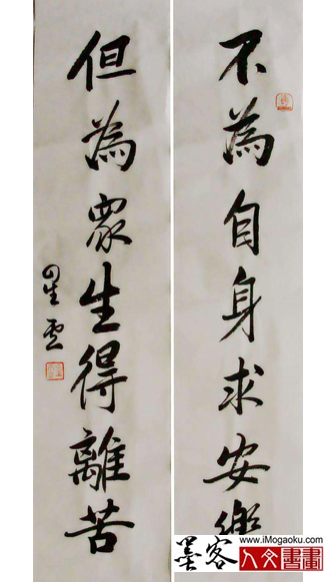 不為自身求安樂
但為眾生得離苦
星雲
墨客
www.iMogaoku.com
人文書畫